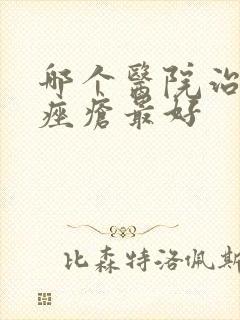 哪个醫院治
痤瘡最好
比森特洛佩斯